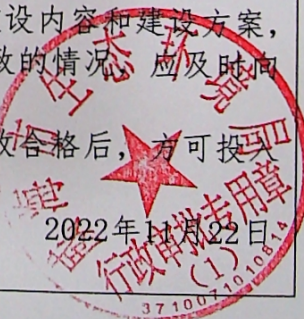 设内容和建设方案,
致的情况,应及时向
收合格后,方可投入
2022年11月22日
市生态环境局
行政审批专用章
(1)
3710071010814